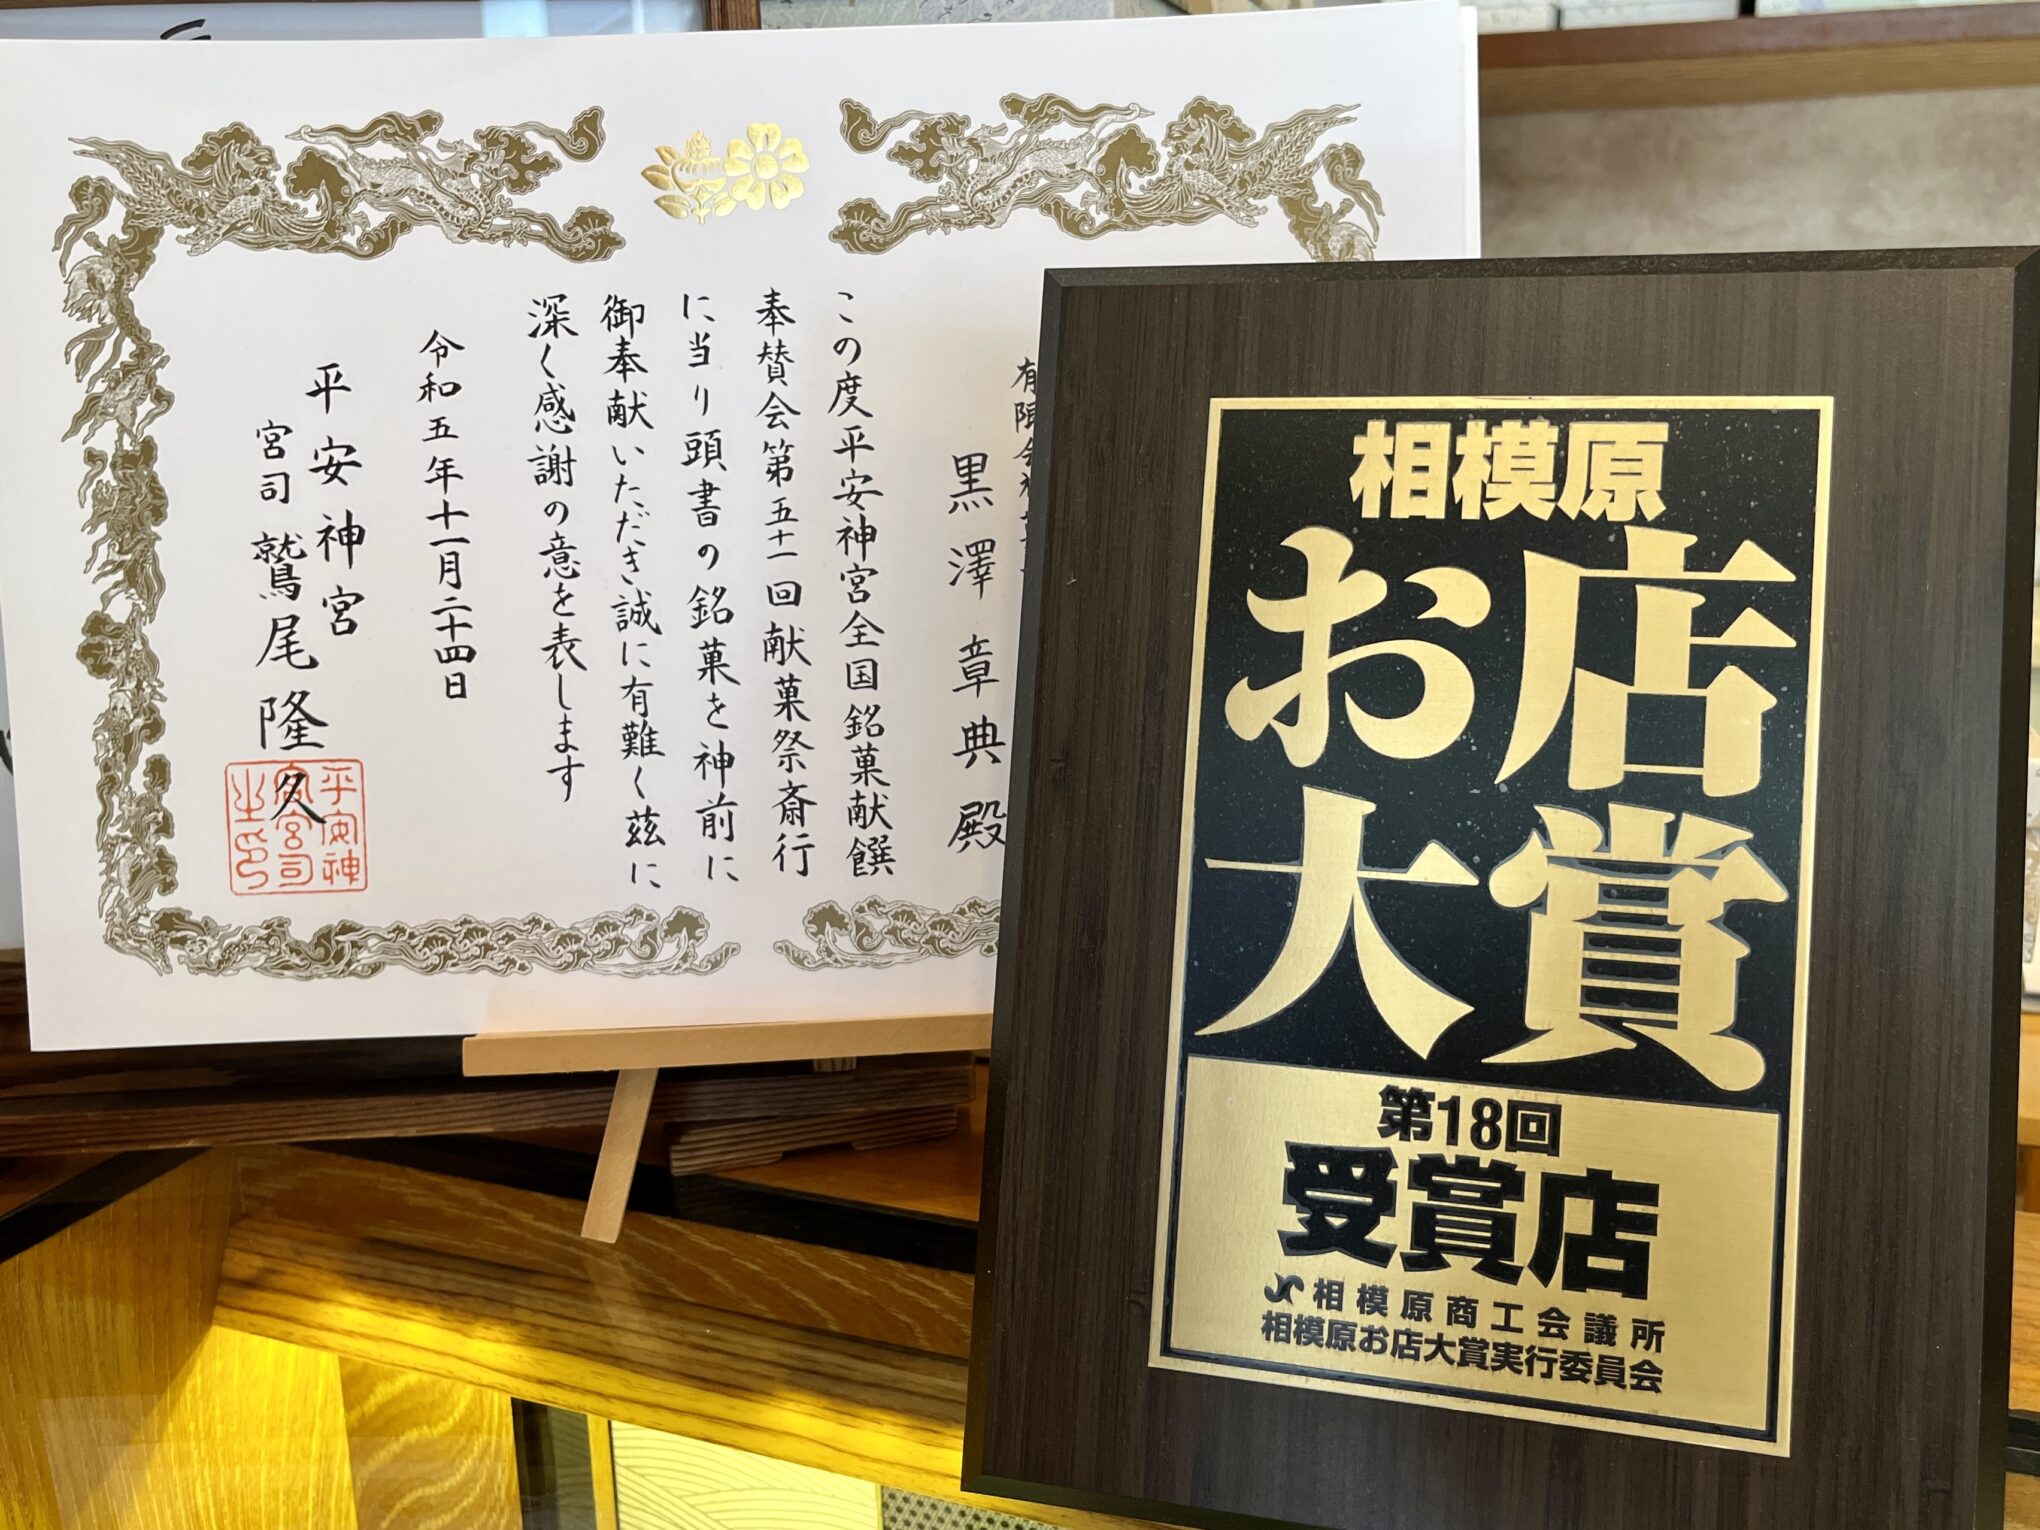 黒澤章典殿
この度平安神宮全国銘菓献饌
奉賛会第五十一回献菓祭斎行
に当り頭書の銘菓を神前に
御奉献いただき誠に有難く茲に
深く感謝の意を表します
令和五年十一月二十四日
平安神宮
宮司 鷲尾隆久
平安神
宮宮司
之印
相模原
お店
大賞
第18回
受賞店
相模原商工会議所
相模原お店大賞実行委員会